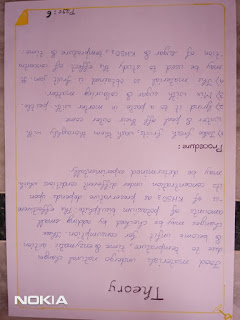 Theory
Food materials undergo natural changes
due to temperature, time & enzymatic action
& become unfit for consumption. These
changes may be checked by adding small
amounts of potassium bisulphite. The effectiveness
of KHSO₃ as preservative depends upon
its concentration under different conditions which
may be determined experimentally.
Procedure:
1) Take fresh fruits, wash them thoroughly with
water & peel off their outer cover
2) Grind it to a paste in mortar with pestle.
3) Mix with sugar & colouring matter.
4) The material so obtained is fruit jam. It
may be used to study the effect of concentra
tion of sugar & KHSO₃, temperature & time.
Page: 6
NOKIA